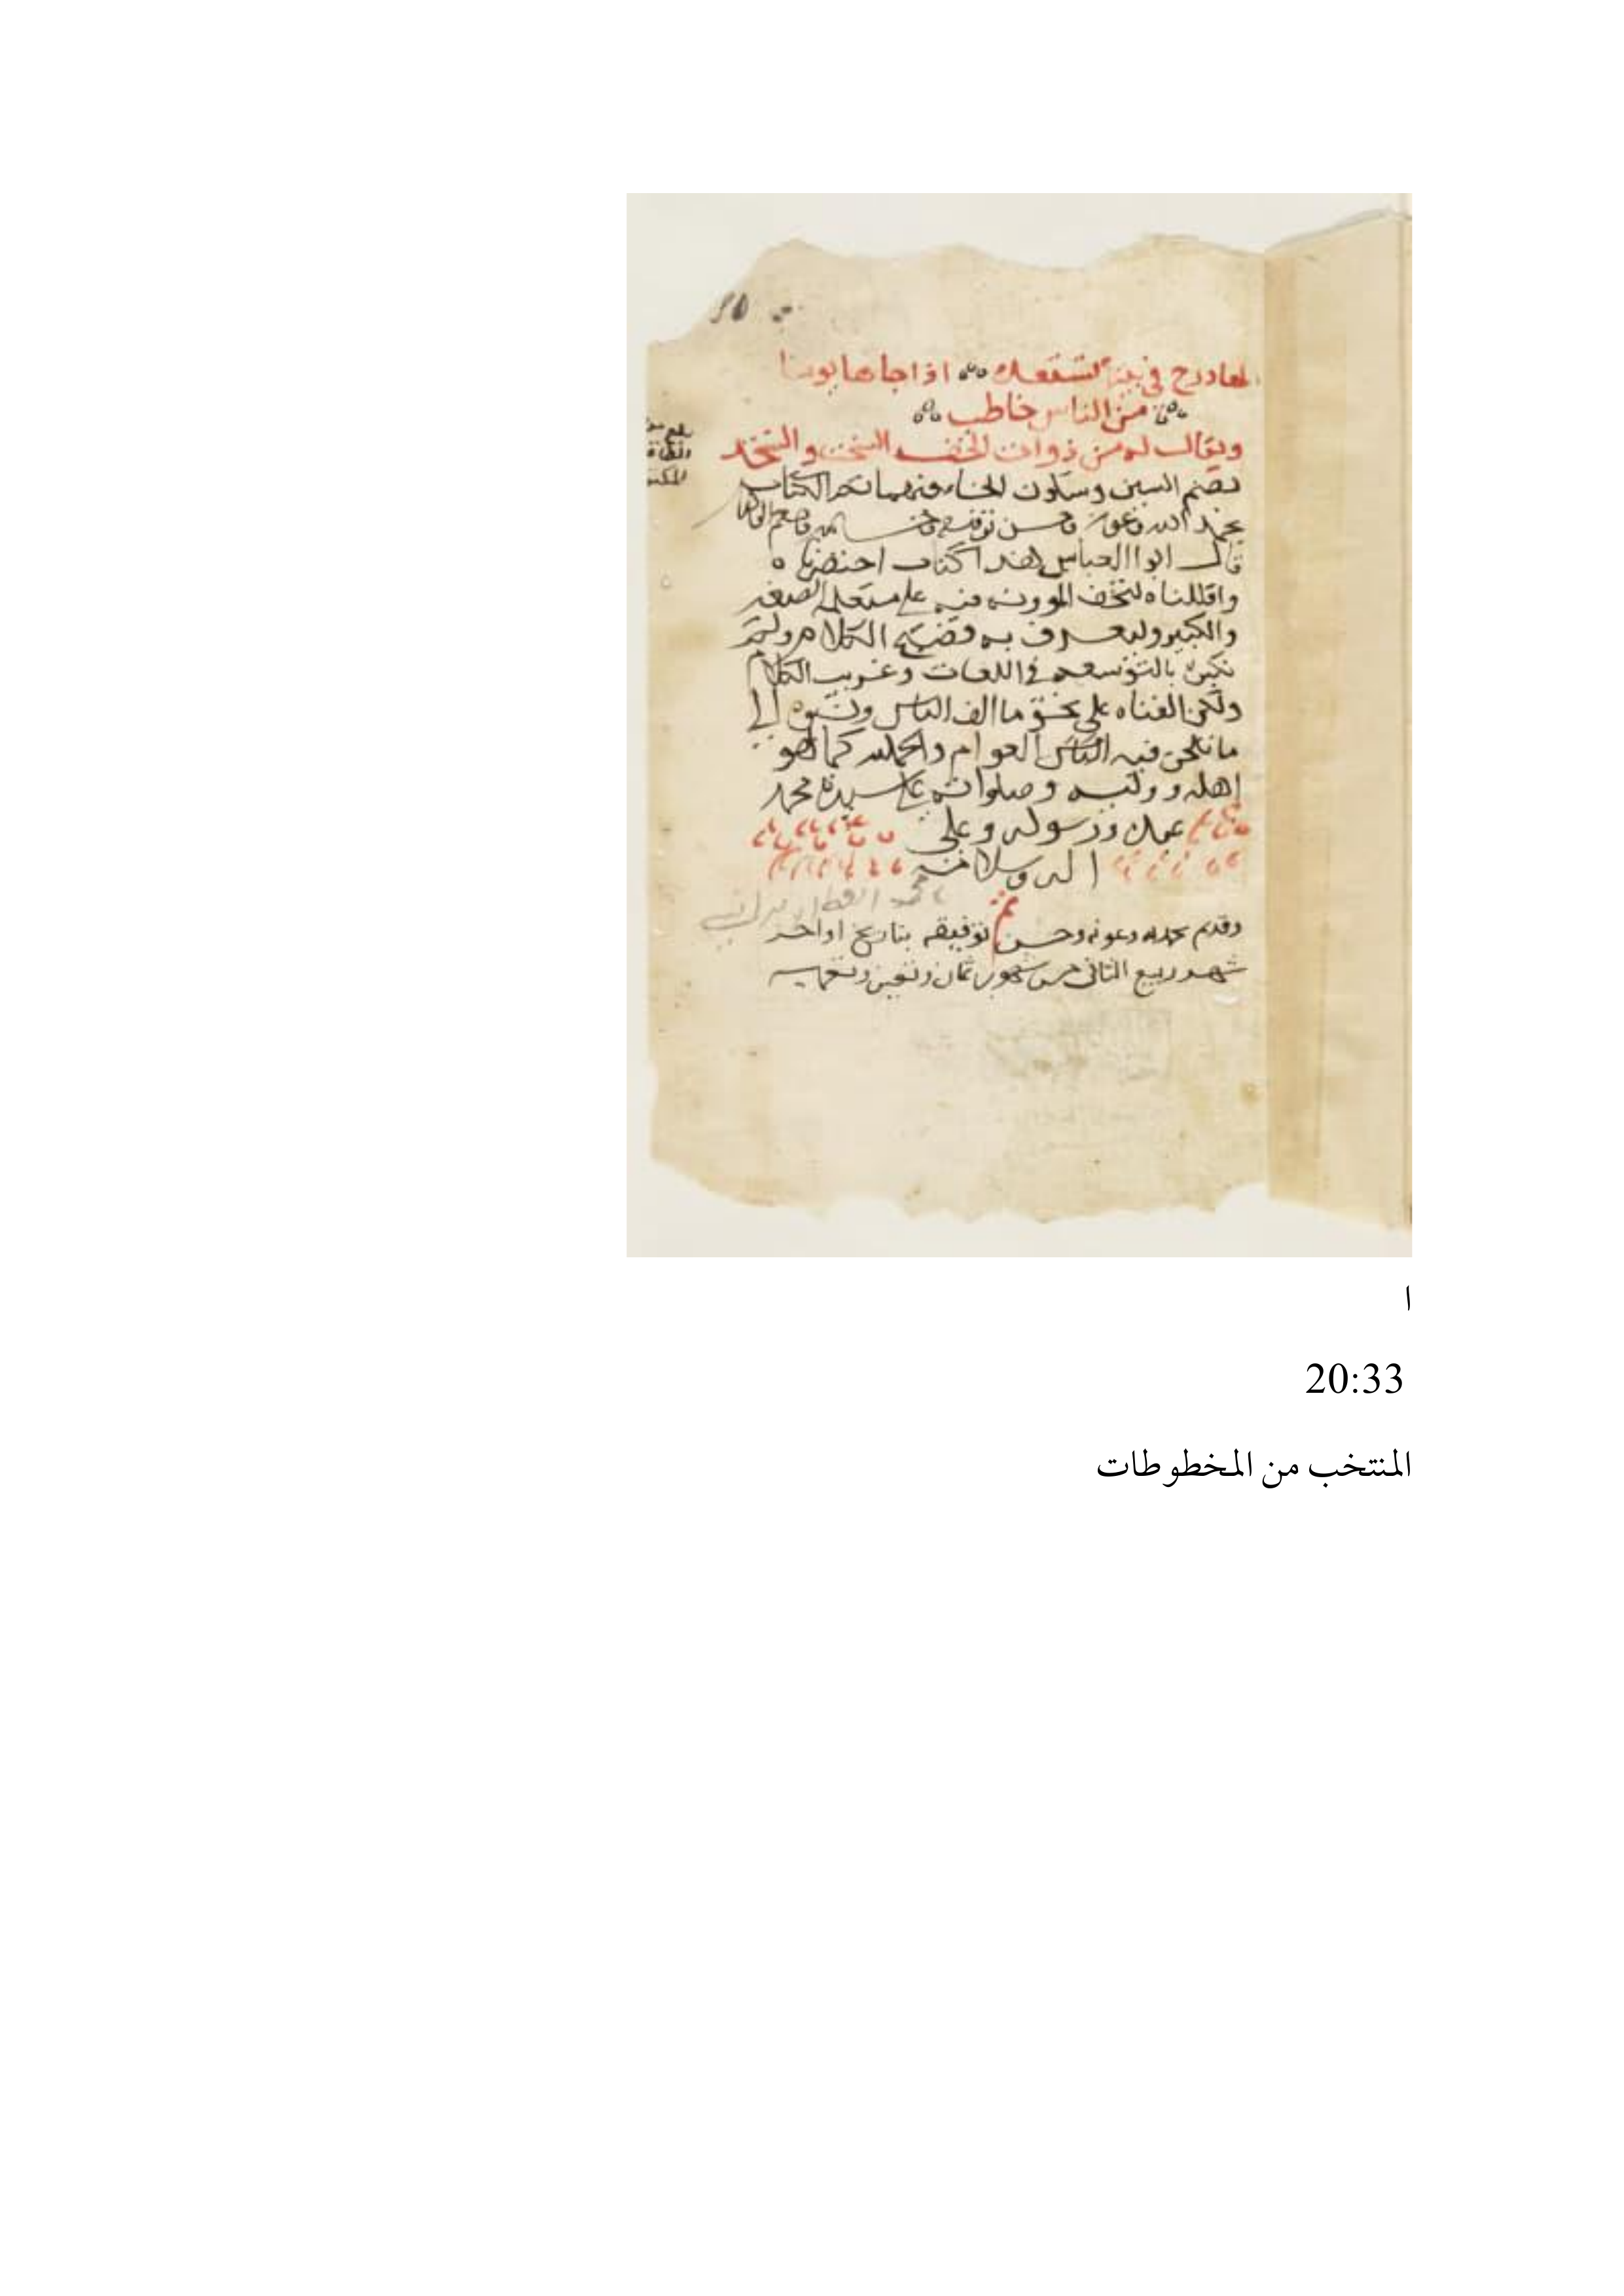 لها درج في بيتها تستعده اذا جاها يوما
من الناس خاطب
ويقال له من ذوات الخف السخت والسخد
بضم السين وسكون الخاء فيهما تم الكتاب
بحمد الله وعونه وحسن توفيقه
قال ابو االعباس هذا كتاب اختصرناه
واقللناه لتخف المورنه فيه على متعلمه الصغير
والكبير وليعرف به فصيح الكلام ولم
نكبره بالتوسعه في اللغات وغريب الكلام
ولكن الفناه على نحو ما الف الناس ونسبوه الي
ما تلحن فيه الناس العوام والحمد لله كما هو
اهله ووليه وصلواته على سيدنا محمد
عبده ورسوله وعلى
اله وسلامه
وقد تم بحمد الله وعونه وحسن توفيقه بتاريخ اواخر
شهر ربيع الثاني من شهور ثمان وتسعين وتسعمايه
ا
20:33
المنتخب من المخطوطات